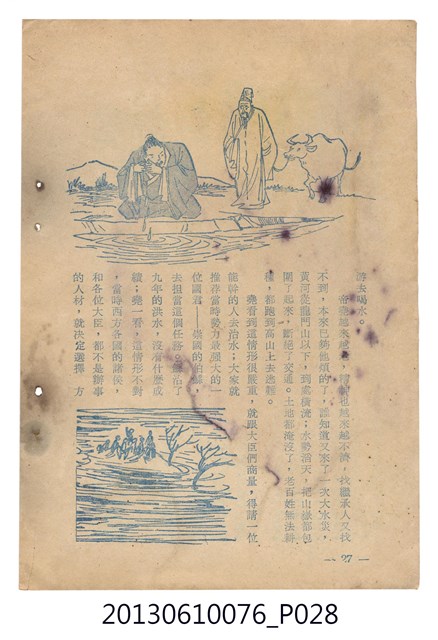 游去喝水。
帝堯越來越老，精神也越來越不濟，找繼承人又找
不到，本來已夠他煩的了，誰知道又來了一次大水災，
黃河從龍門山以下，到處橫流；水勢滔天，把山陵都包
圍了起來，斷絕了交通。土地都淹沒了，老百姓無法耕
種，都跑到高山上去逃難。
堯看到這情形很嚴重，就跟大臣們商量，得請一位
能幹的人去治水；大家就
推荐當時勢力最强大的一
位國君——崇國的伯鯀，
去担當這個任務。鯀治了
九年的洪水，沒有什麼成
績；堯一看，這情形不對
，當時西方各國的諸侯，
和各位大臣，都不是辦事
的人材，就決定選擇　方
— 27 —
20130610076_P028